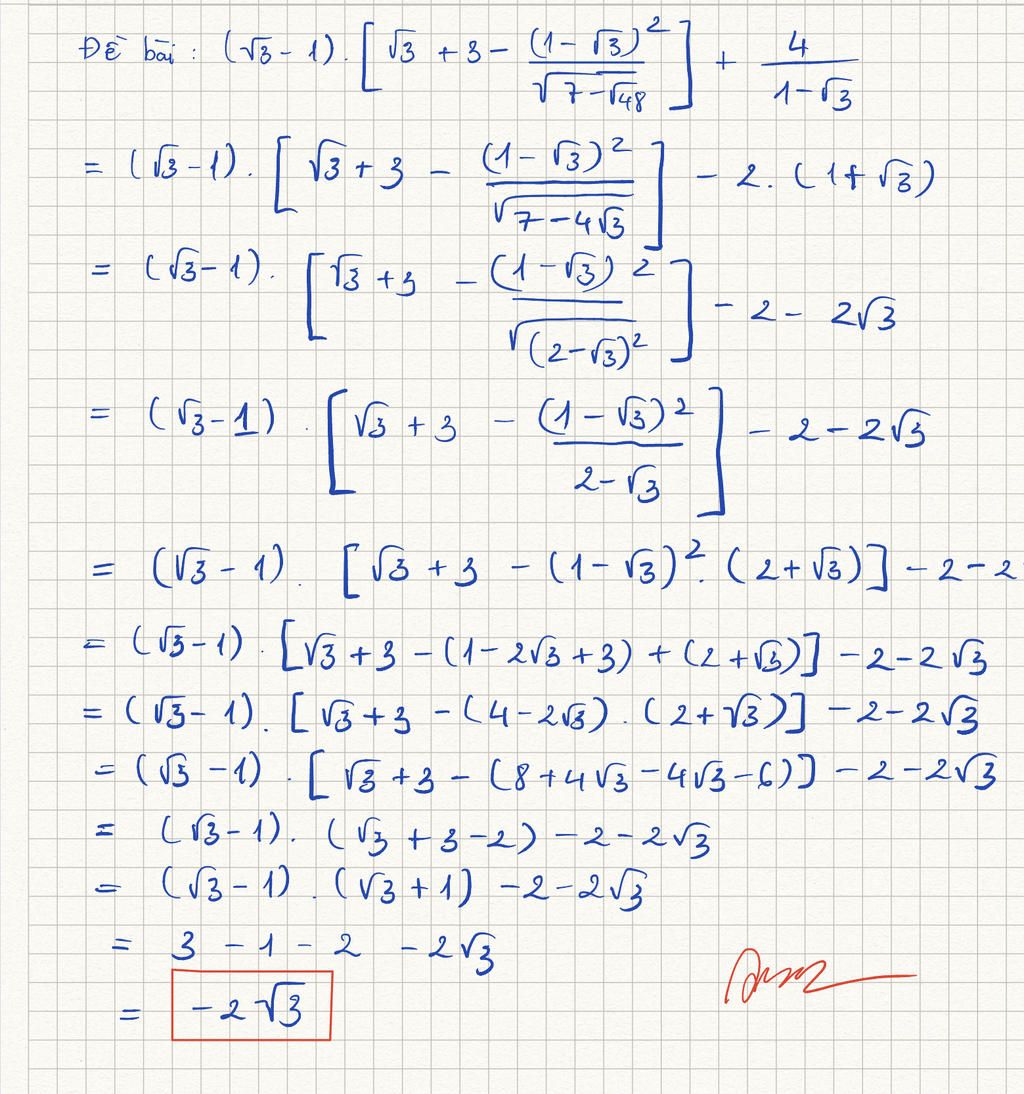 Đề bài : (√3 - 1) . [√3 + 3 - (1 - √3)² / √(7 - √48)] + 4 / (1 - √3)
= (√3 - 1) . [√3 + 3 - (1 - √3)² / √(7 - 4√3)] - 2 . (1 + √3)
= (√3 - 1) . [√3 + 3 - (1 - √3)² / √((2 - √3)²)] - 2 - 2√3
= (√3 - 1) . [√3 + 3 - (1 - √3)² / (2 - √3)] - 2 - 2√3
= (√3 - 1) . [√3 + 3 - (1 - √3)² . (2 + √3)] - 2 - 2
= (√3 - 1) . [√3 + 3 - (1 - 2√3 + 3) + (2 + √3)] - 2 - 2√3
= (√3 - 1) . [√3 + 3 - (4 - 2√3) . (2 + √3)] - 2 - 2√3
= (√3 - 1) . [√3 + 3 - (8 + 4√3 - 4√3 - 6)] - 2 - 2√3
= (√3 - 1) . (√3 + 3 - 2) - 2 - 2√3
= (√3 - 1) . (√3 + 1) - 2 - 2√3
= 3 - 1 - 2 - 2√3
= -2√3